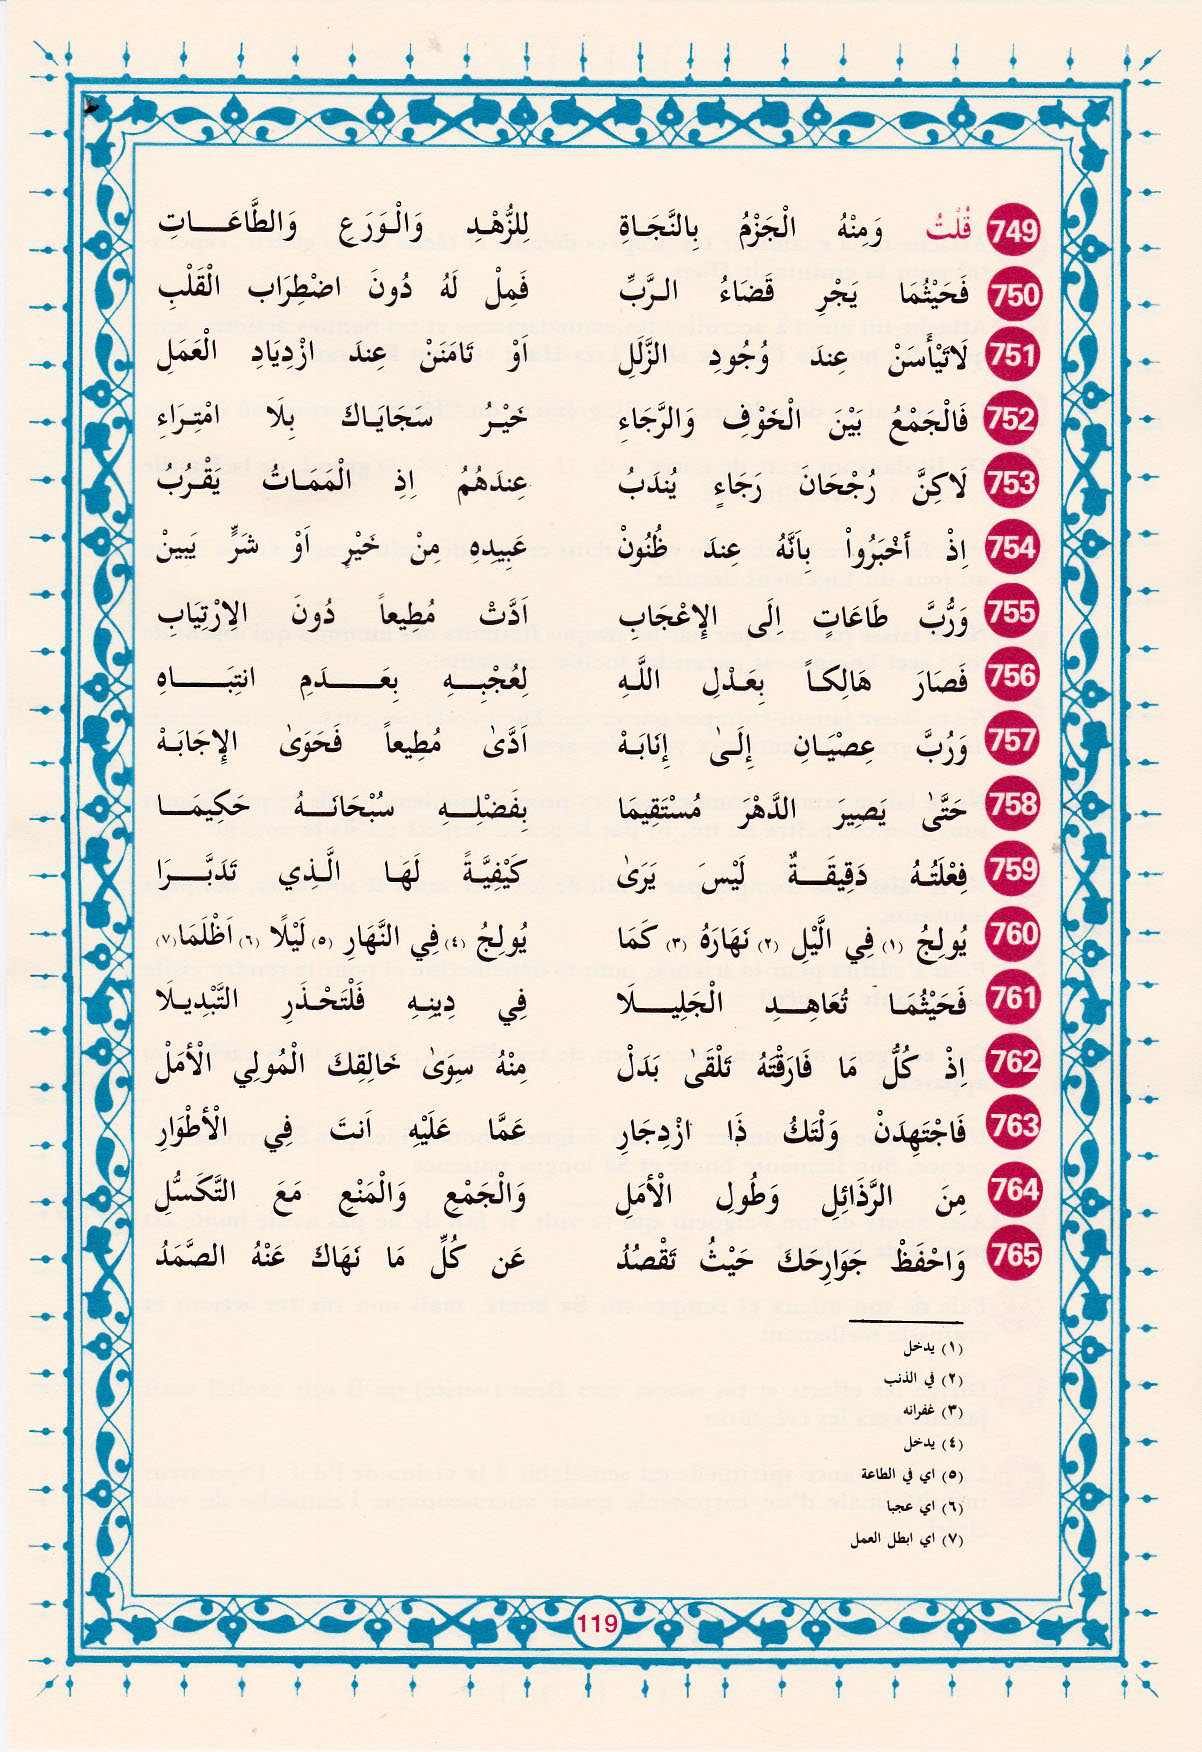 749 قُلْتُ وَمِنْهُ الْحَزْمُ بِالنَّجَاةِ لِلزُّهْدِ وَالْوَرَعِ وَالطَّاعَـــاتِ
750 فَحَيْثُمَا يَجْرِ قَضَاءُ الـرَّبِّ فَمِلْ لَهُ دُونَ اضْطِرَابِ الْقَلْبِ
751 لَاتَيْأَسَنْ عِندَ وُجُودِ الزَّلَلِ اَوْ تَامَنَنْ عِندَ ازْدِيَادِ الْعَمَلِ
752 فَالْجَمْعُ بَيْنَ الْخَوْفِ وَالرَّجَاءِ خَيْـرُ سَجَايَـاكَ بِلَا امْتِـرَاءِ
753 لَاكِنَّ رُجْحَانَ رَجَاءٍ يُنْدَبُ عِندَهُمُ اِذِ الْمَمَـاتُ يَقْـرُبُ
754 اِذْ أَخْبَرُواْ بِاَنَّهُ عِندَ ظُنُونْ عَبِيدِهِ مِنْ خَيْرٍ اَوْ شَرٍّ يَبِينْ
755 وَرُبَّ طَاعَاتٍ اِلَى الإِعْجَابِ اَدَّتْ مُطِيعاً دُونَ الِارْتِيَابِ
756 فَصَارَ هَالِكـاً بِعَـدْلِ اللَّـهِ لِعُجْبِــهِ بِعَــــدَمِ انتِبَـــــاهِ
757 وَرُبَّ عِصْيَـانٍ إِلَـىٰ إِنَابَـهْ اَدَّىٰ مُطِيعاً فَحَوَىٰ الإِجَابَـهْ
758 حَتَّىٰ يَصِيرَ الدَّهْرَ مُسْتَقِيمَا بِفَضْلِـــهِ سُبْحَانَــهُ حَكِيمَــا
759 فِعْلَتُـهُ دَقِيقَــةٌ لَيْسَ يَرَىٰ كَيْفِيَّـةً لَهَـا الَّـذِي تَدَبَّـــرَا
760 يُولِجُ (١) فِي الَّيْلِ (٢) نَهَارَهُ (٣) كَمَا يُولِجُ (٤) فِي النَّهَارِ (٥) لَيْلًا (٦) اَظْلَمَا (٧)
761 فَحَيْثُمَـا تُعَاهِــدِ الْجَلِيــلَا فِي دِينِـهِ فَلْتَحْـذَرِ التَّبْدِيـلَا
762 اِذْ كُلُّ مَا فَارَقْتَهُ تَلْقَىٰ بَدَلْ مِنْهُ سِوَىٰ خَالِقِكَ الْمُولِي الْأمَلْ
763 فَاجْتَهِدَنْ وَلْتَكُ ذَا ازْدِجَارِ عَمَّا عَلَيْهِ اَنتَ فِي الْأطْوَارِ
764 مِنَ الرَّذَائِلِ وَطُولِ الْأمَلِ وَالْجَمْعِ وَالْمَنْعِ مَعَ التَّكَسُّلِ
765 وَاحْفَظْ جَوَارِحَكَ حَيْثُ تَقْصُدُ عَن كُلِّ مَا نَهَاكَ عَنْهُ الصَّمَدُ
(١) يدخل
(٢) في الذنب
(٣) غفرانه
(٤) يدخل
(٥) اي في الطاعة
(٦) اي عجبا
(٧) اي ابطل العمل
119